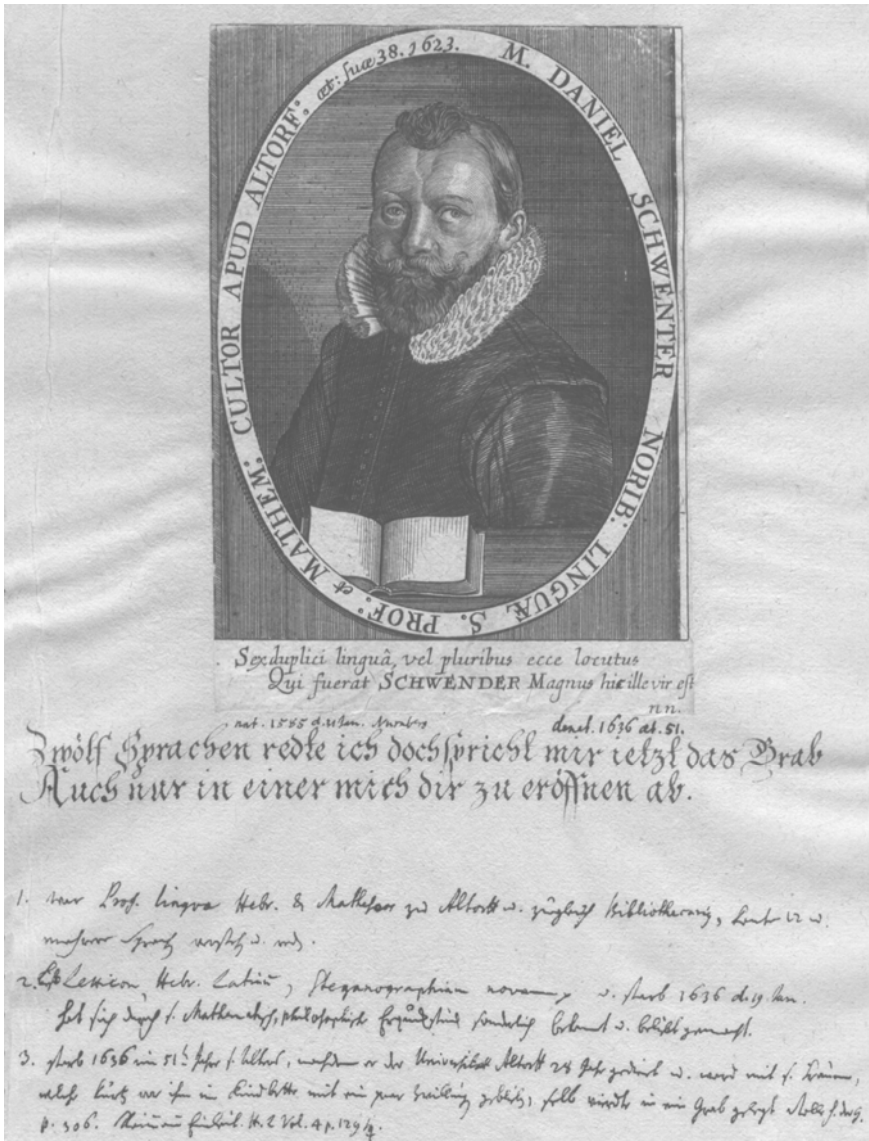 M. DANIEL SCHWENTER NORIB: LINGUÆ S. PROF: et MATHEM: CULTOR APUD ALTORF: æt: suæ 38. 1623.
Sexduplici linguâ, vel pluribus ecce locutus
Qui fuerat SCHWENDER Magnus hic ille vir est
nn.
nat. 1585 d. 31 Jan. Nurnberg denat. 1636 æt. 51.
Zwölf Sprachen redte ich doch spricht mir ietzt das Grab
Auch nur in einer mich dir zu eröffnen ab.
1. war Prof. lingvæ Hebr. & Matheseos zu Altorff u. zugleich Bibliothecarius, konte 12 u.
mehrere Sprach verstehn u. redn.
2. Lexicon Hebr. Latinū, Steganographiam novam, u. starb 1636 d. 19. Jan.
hat sich durch s. Mathematisch, philosophische Erquickstund sonderlich bekant u. beliebt gemacht.
3. starb 1636 im 51 Jahr s. Alters, nachdem er der Universität Altorff 28 Jahr gedient u. ward mit s. Frauen,
welche kurtz vor ihm im Kindbette mit ein paar Zwilling in ein Grab gelegt
p. 306. H. 2 Vol. 4 p. 129